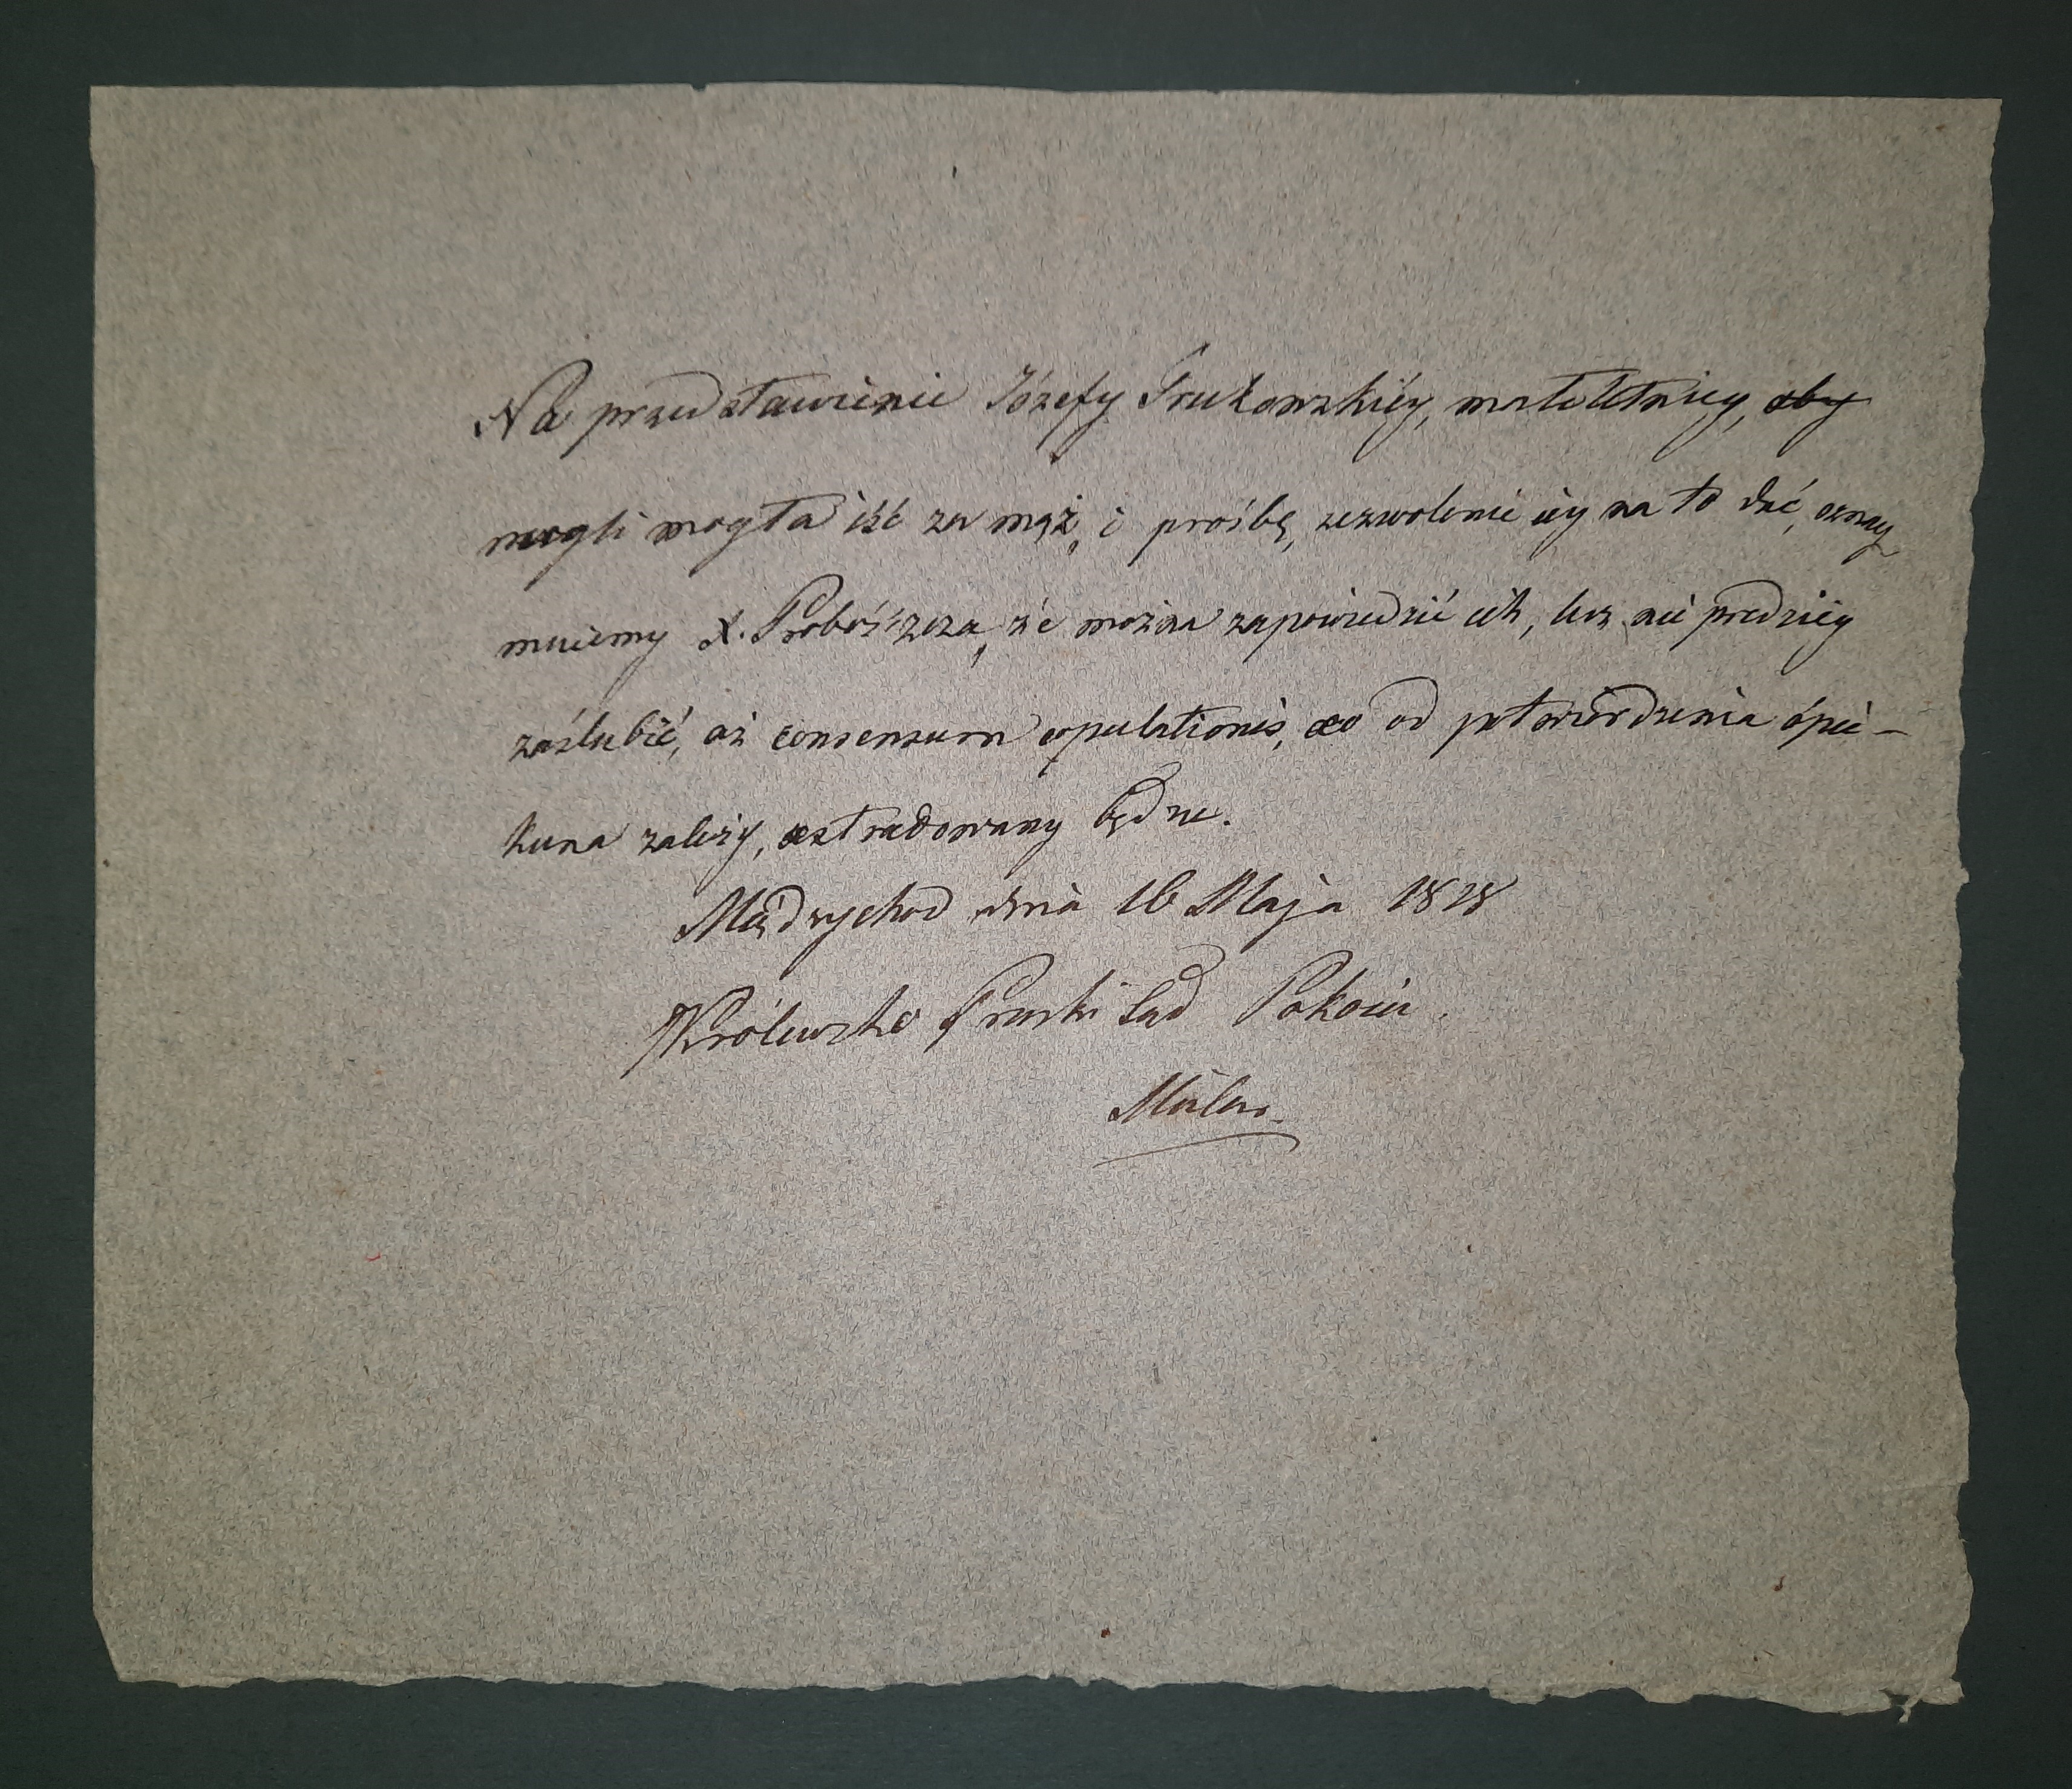 Na przedstawienie Józefy Trukowskiéy, małoletniey, aby
mogli mogła iść za mąż, i prośbę, zezwolenie iéy na to dać, oznay
muiemy X. Proboszcza, że można zapowiedzić ich, lecz nie prędziéy
zaślubić, aż consensum copulationis, co od potwierdzenia opie-
kuna zależy, extradowany będzie.
Międzychod dnia 16 Maja 1818
Królewsko Pruski Sąd Pokoiu.